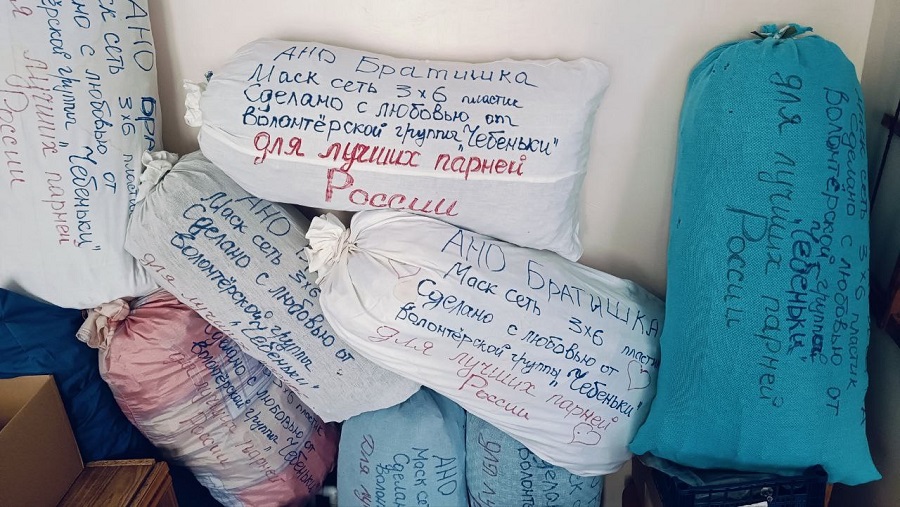 АНО
сеть 3х6
но с любовью от
группы "Чебеньки"
лучших парней
России
АНО Братишка
Маск сеть 3х6 пластик
Сделано с любовью от
Волонтёрской группы "Чебеньки"
для лучших парней
России
АНО
Маск сеть 3х6
Сделано с любовью от
Волонтёрской группы
"Чебеньки"
для
АНО Братишка
Маск сеть 3х6 пластик
Сделано с любовью от
Волонтёрской группы "Чебеньки"
для лучших парней
России
сеть 3х6 пластик
Сделано с любовью от
Волонтёрской группы
"Чебеньки"
для лучших парней
России
3х6 пластик
с любовью от
Волонтёрской группы
"Чебеньки"
парней
России
АНО
Маск сет
Сделан
Волон
для лу